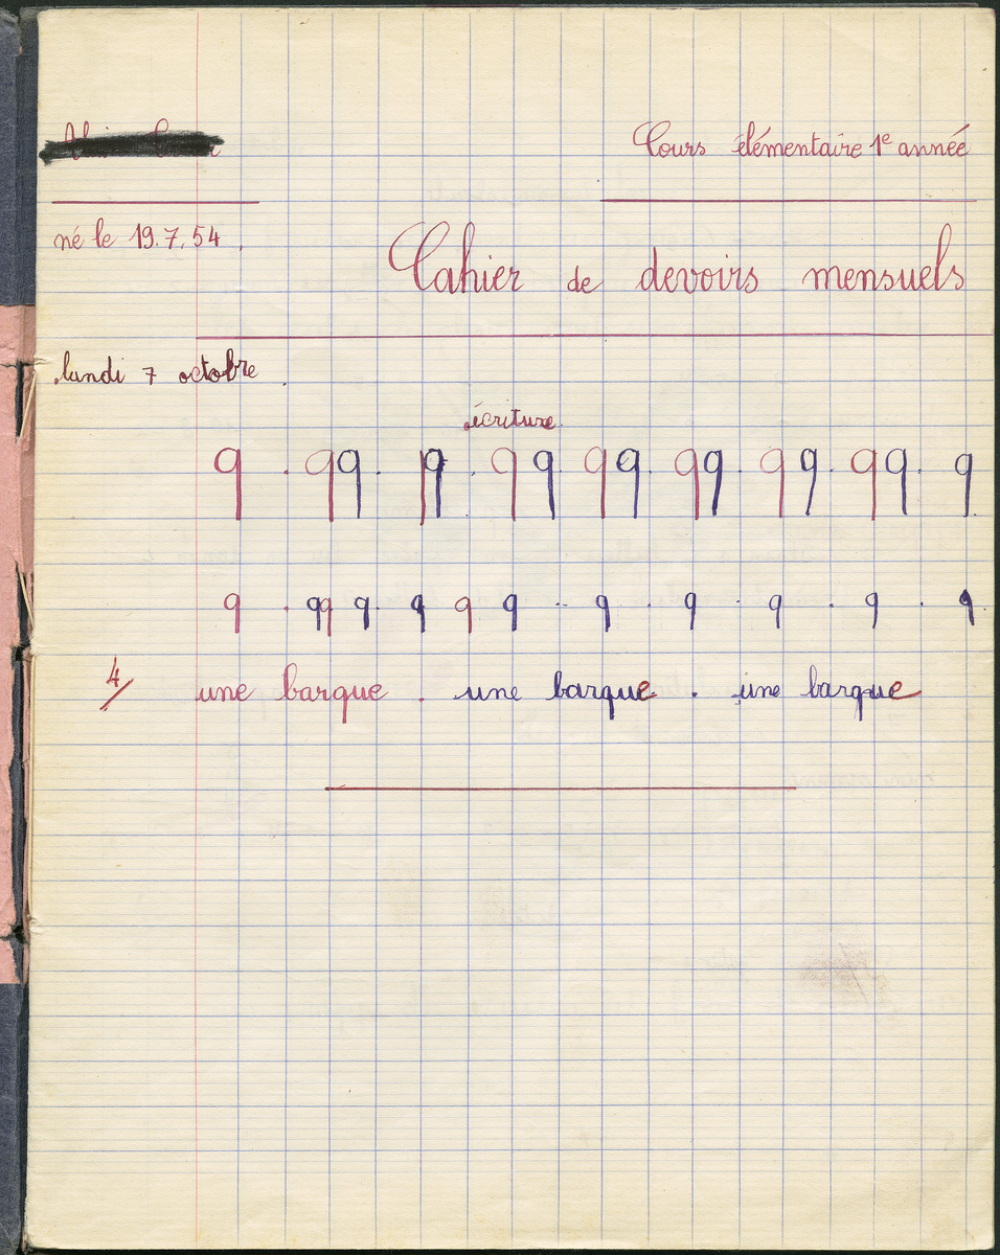 Cours élémentaire 1e année
né le 19.7.54.
Cahier de devoirs mensuels
lundi 7 octobre.
écriture
q . qq . qq . qq qq . qq . qq . qq . q
q . qq q . q q q . . q . q . q . q . q
4/ une barque . une barque . une barque